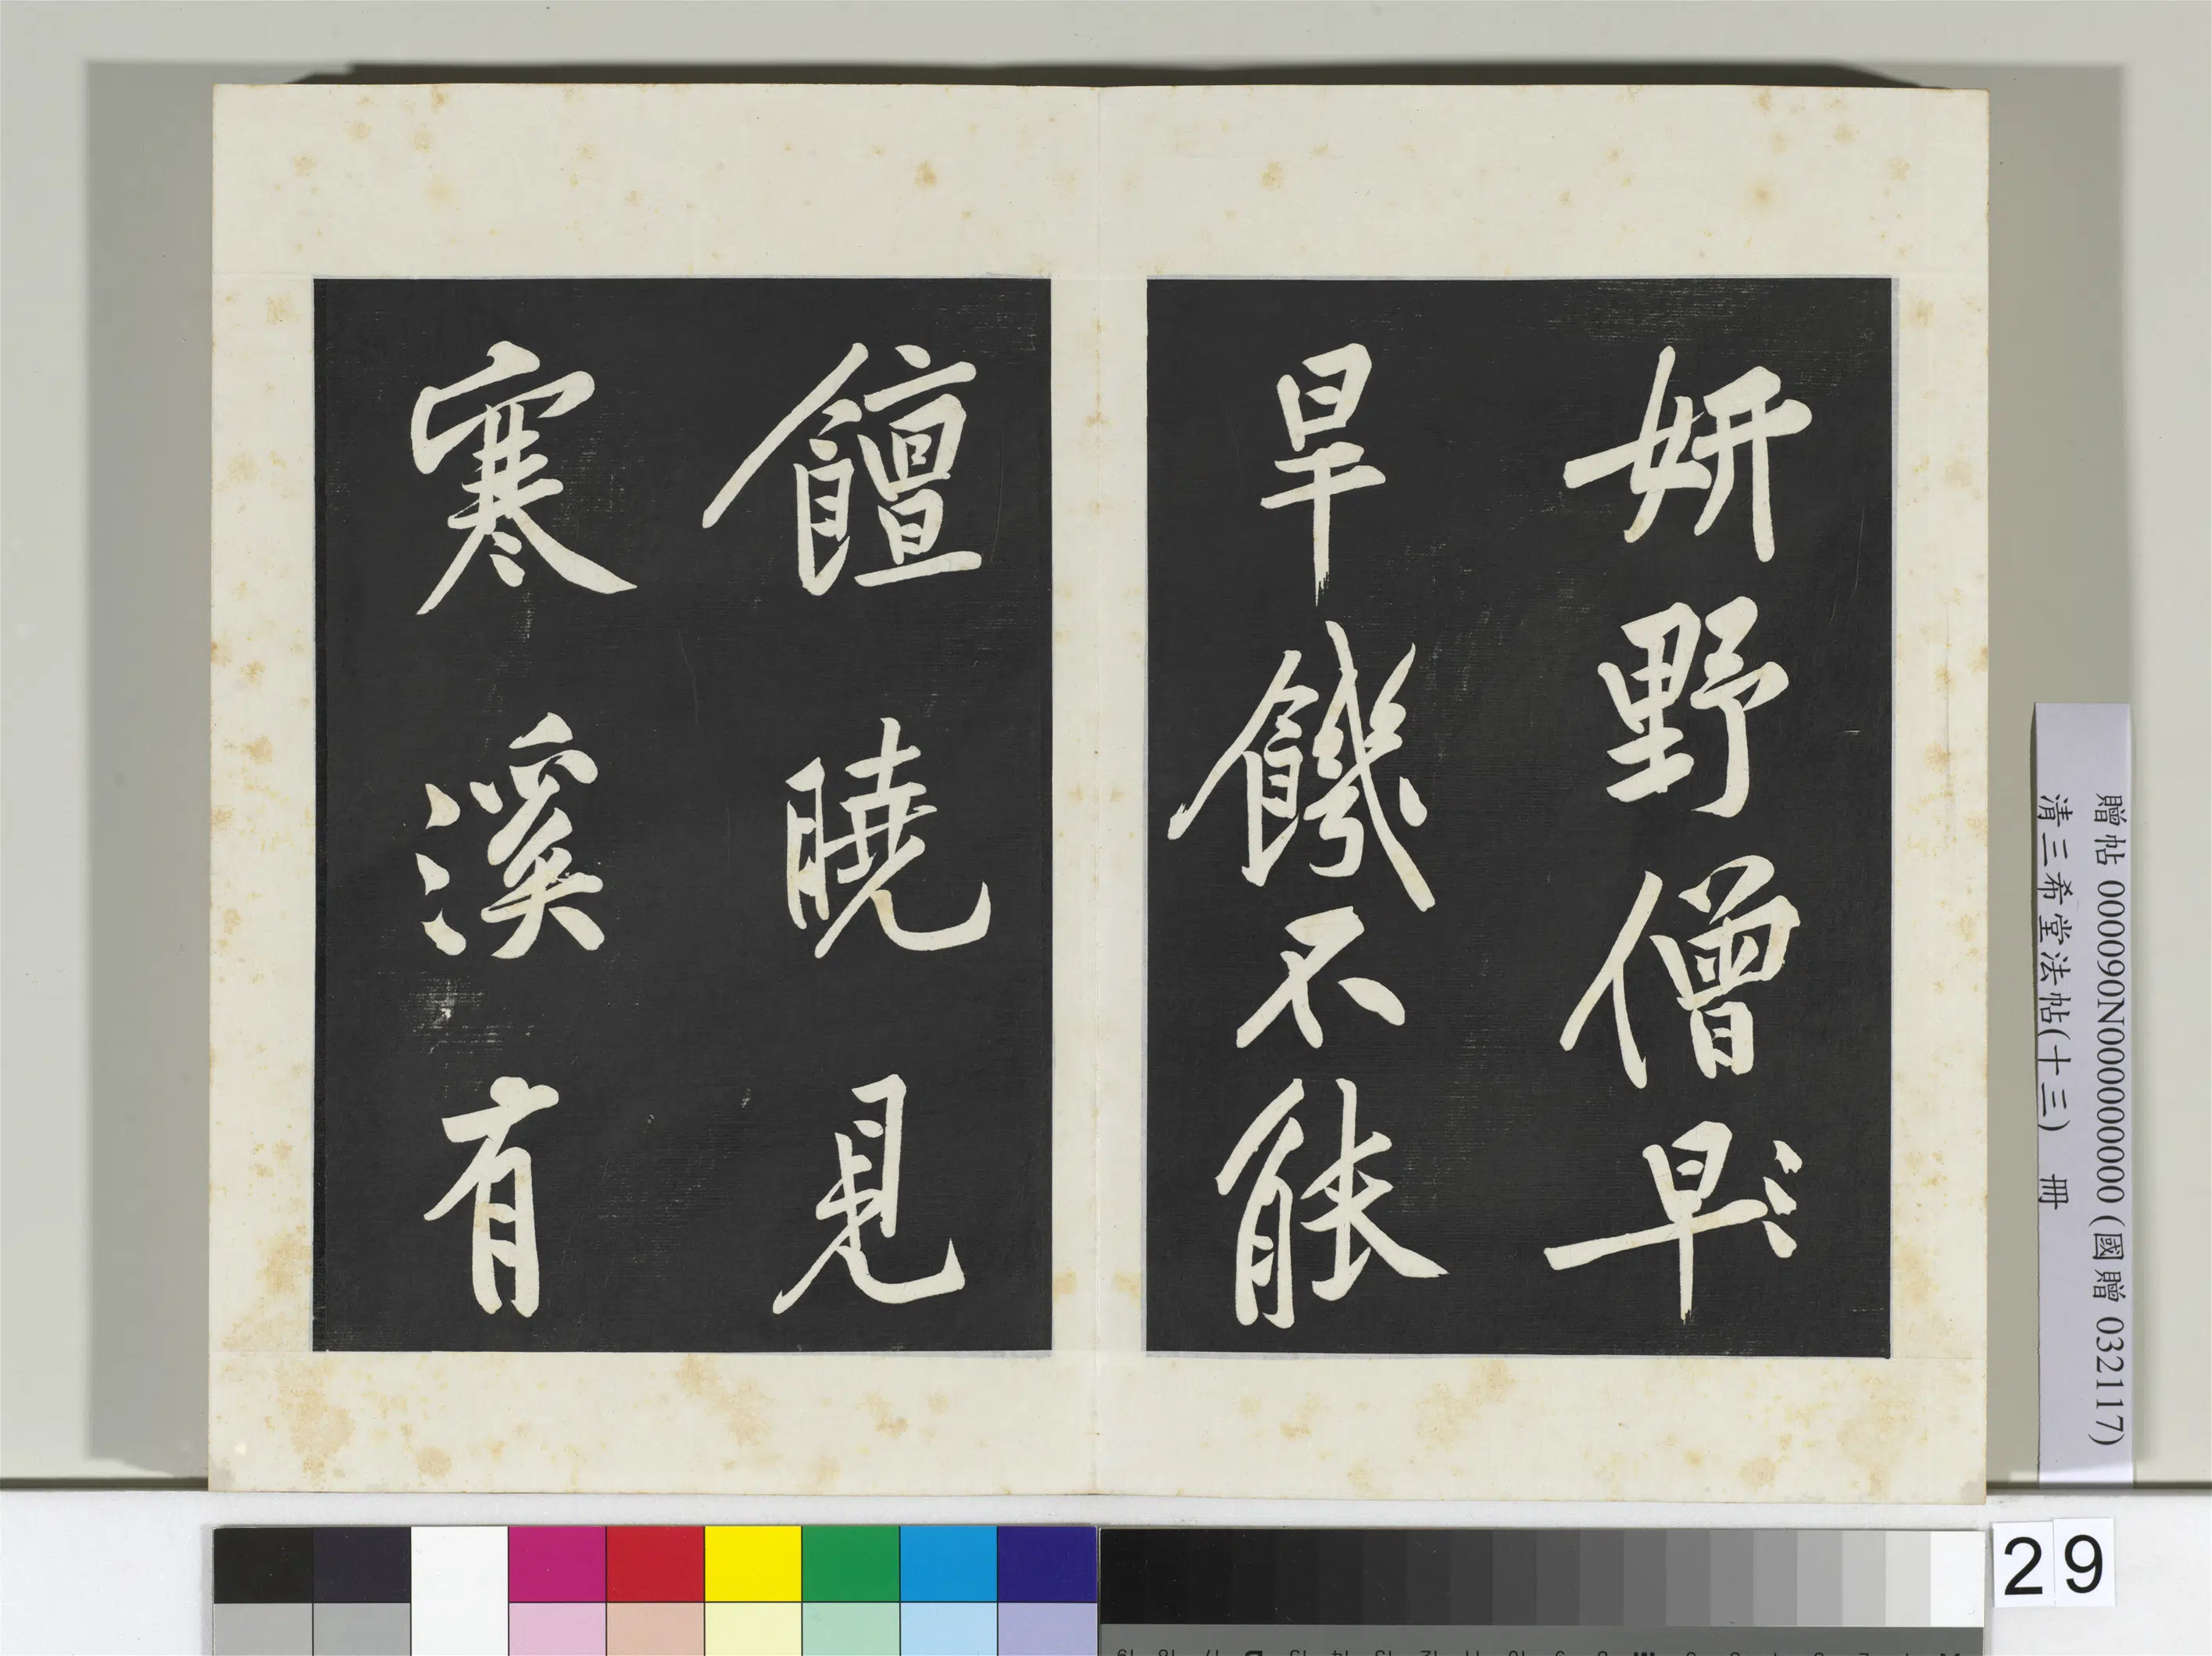 妍野僧早
旱饑不能
饘曉見
寒溪有
贈帖 000090N000000000 (國贈 032117)
清三希堂法帖(十三) 冊
29